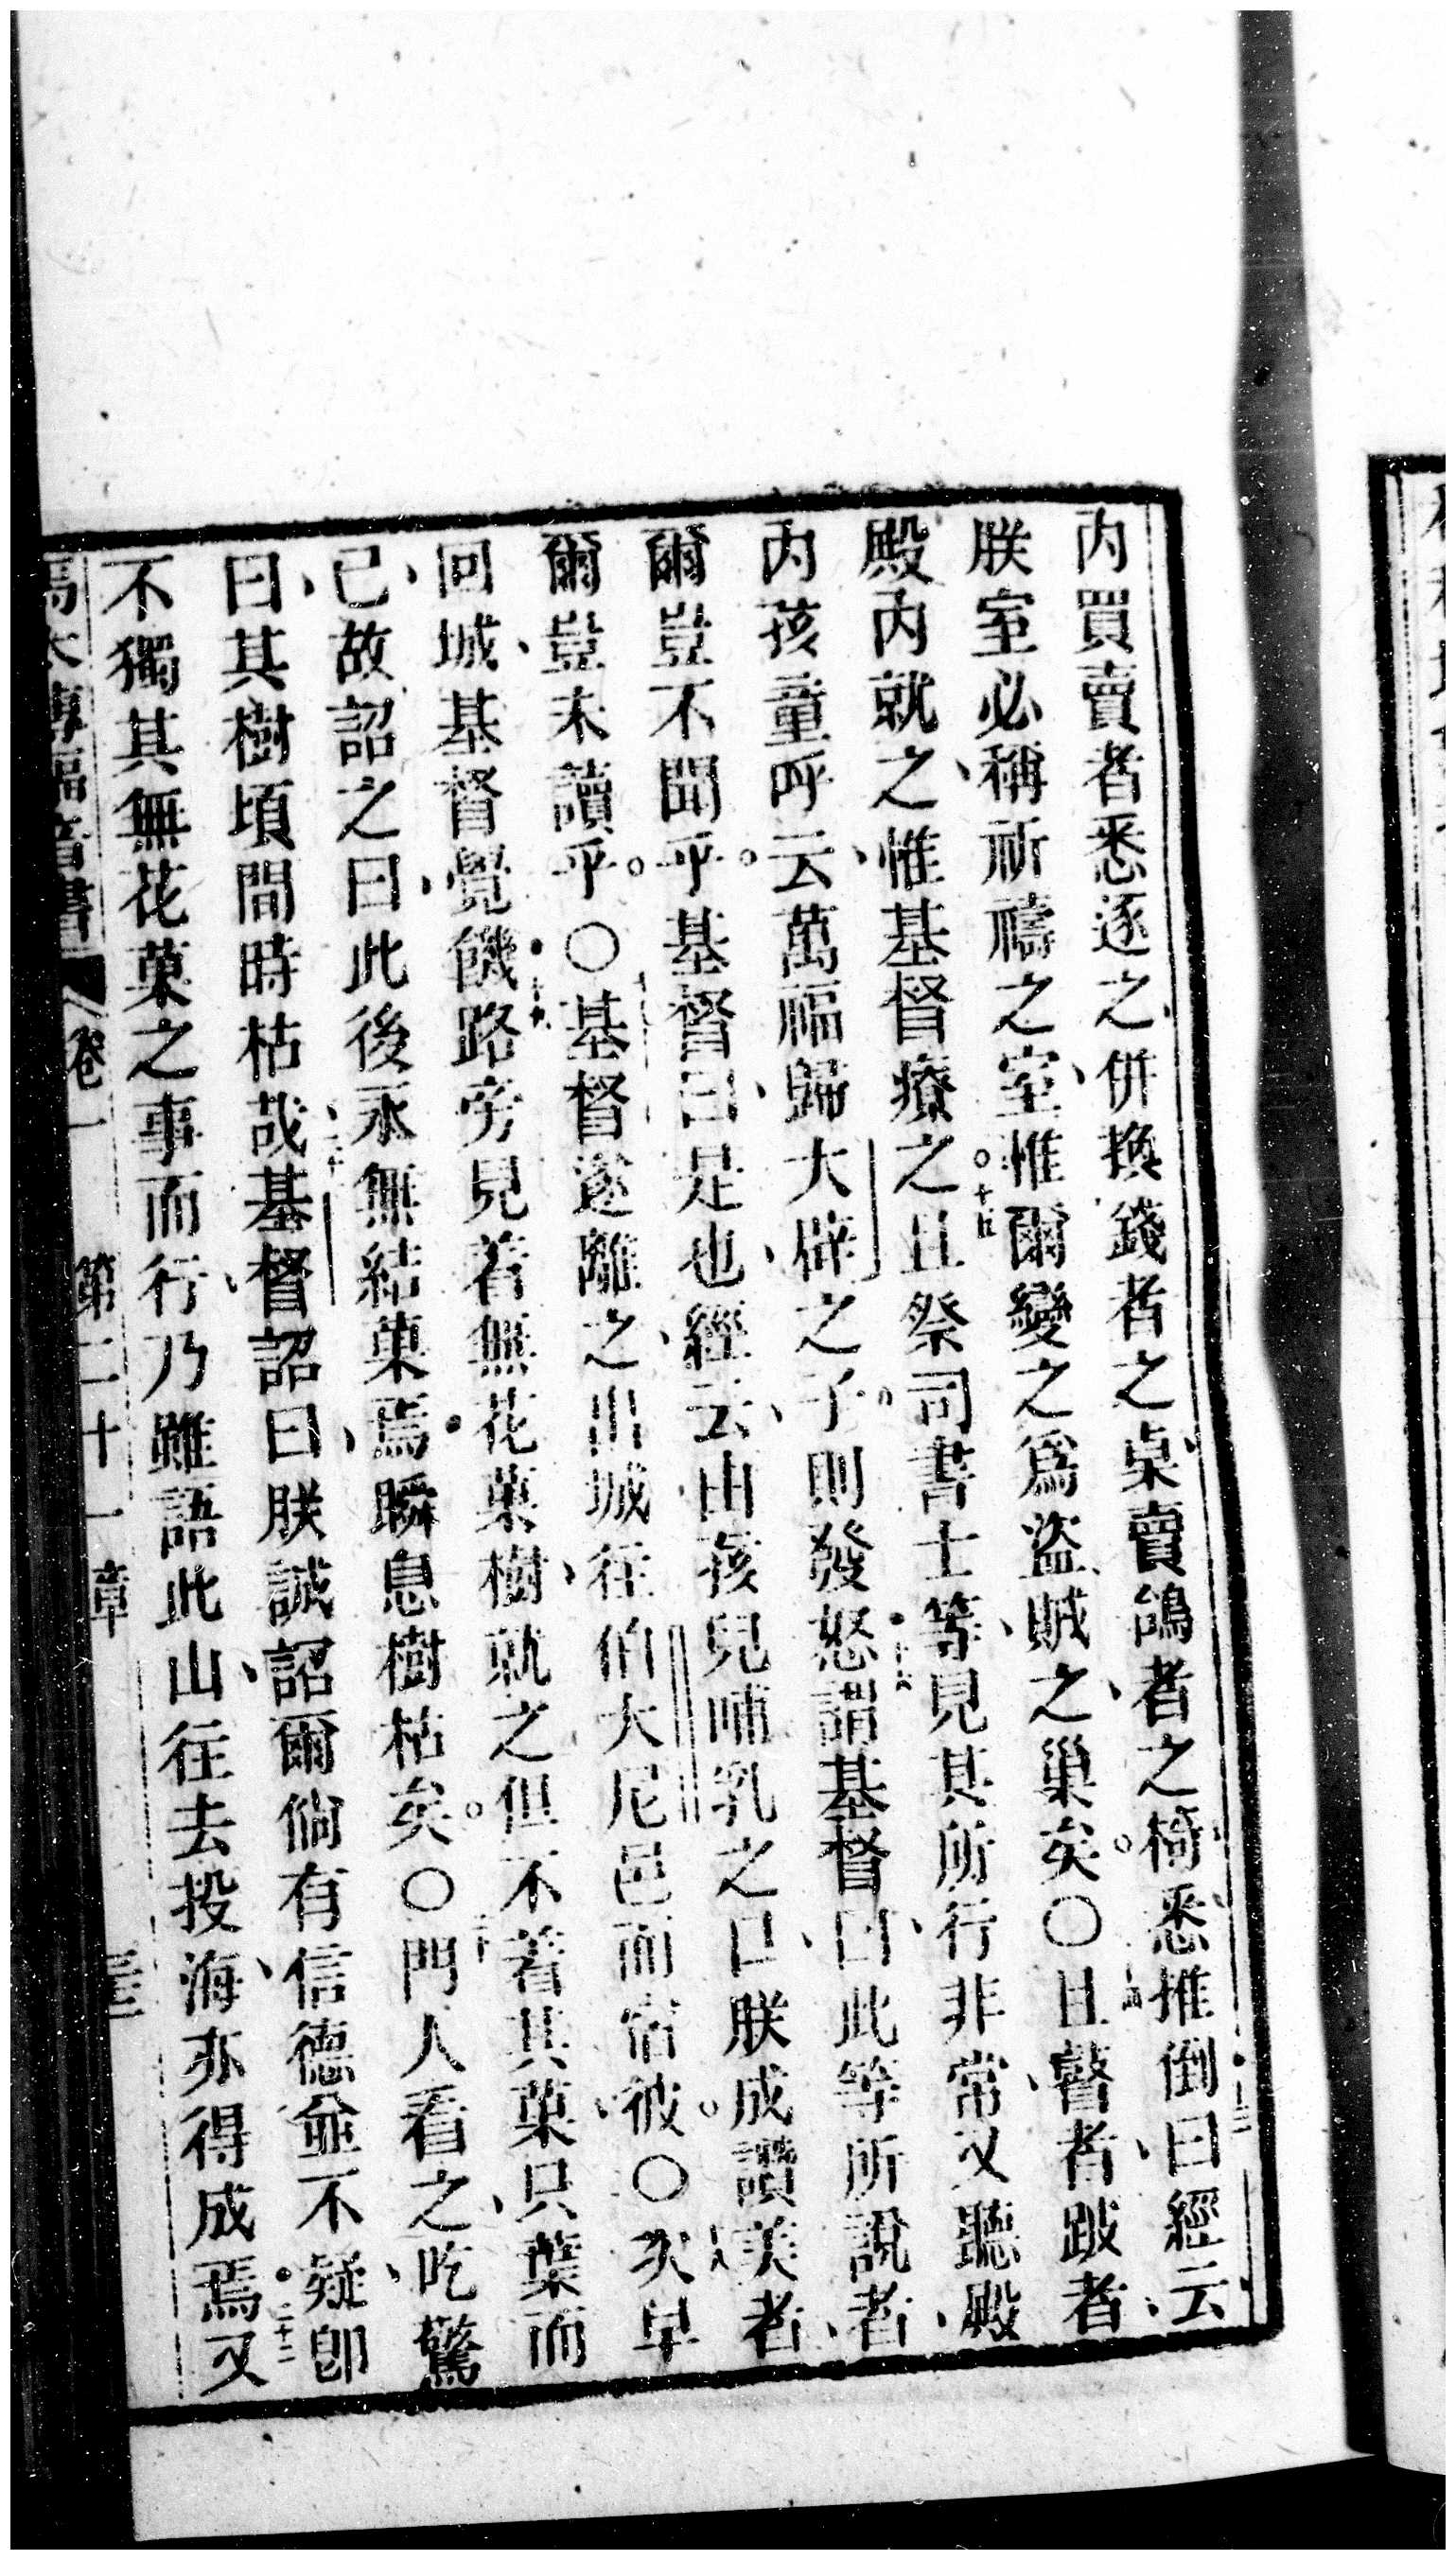 內買賣者悉逐之、併換錢者之桌、賣鴿者之椅、悉推倒、十三曰、經云、
朕室必稱祈禱之室、惟爾變之爲盜賊之巢矣。〇十四且瞽者跛者、
殿內就之、惟基督療之。十五且祭司書士等、見其所行非常、又聽殿
內孩童呼云、萬福歸大辟之子。則發怒、十六謂基督曰、此等所說者、
爾豈不聞乎。基督曰、是也、經云、由孩兒哺乳之口、朕成讚美者、
爾豈未讀乎。〇十七基督遂離之、出城、往伯大尼邑而宿彼。〇十八次早
回城、基督覺饑、十九路旁見着無花菓樹、就之、但不着其菓、只葉而
已、故詔之曰、此後永無結菓焉、瞬息樹枯矣。〇二十門人看之、吃驚
曰、其樹頃間時枯哉、二十一基督詔曰、朕誠詔爾、倘有信德、並不疑、卽
不獨其無花菓之事而行、乃雖語此山、往去投海、亦得成焉、二十二又
馬太傳福音書 卷一 第二十一章